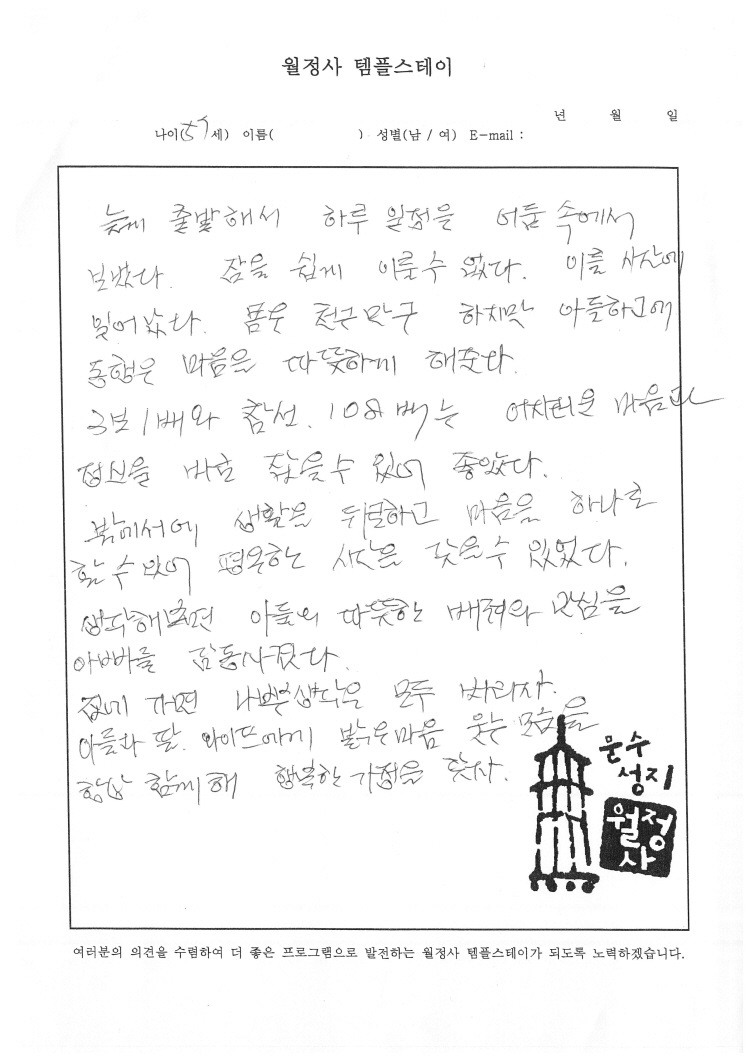 월정사 템플스테이
년 월 일
나이(57세) 이름( ) 성별(남 / 여) E-mail :
늦게 출발해서 하루 일정을 어둠 속에서
보냈다. 잠을 쉽게 이룰수 없다. 이를 시간에
일어났다. 몸은 천근만근 하지만 아들하고에
동행은 마음을 따뜻하게 해준다.
3보1배와 참선. 108배는 어지러운 마음과
정신을 바로 잡을수 있어 좋았다.
밖에서에 생활을 뒤돌아보고 마음을 하나로
할수 있어 평온한 시간을 갖을수 있었다.
생각해보면 아들의 따뜻한 배려와 관심을
아빠를 감동시켰다.
집에 가면 나쁜생각은 모두 버리자.
아들과 딸. 와이프에게 밝은마음 웃는 모습을
항상 함께해 행복한 가정을 갖자.
문수
성지
월정
사
여러분의 의견을 수렴하여 더 좋은 프로그램으로 발전하는 월정사 템플스테이가 되도록 노력하겠습니다.